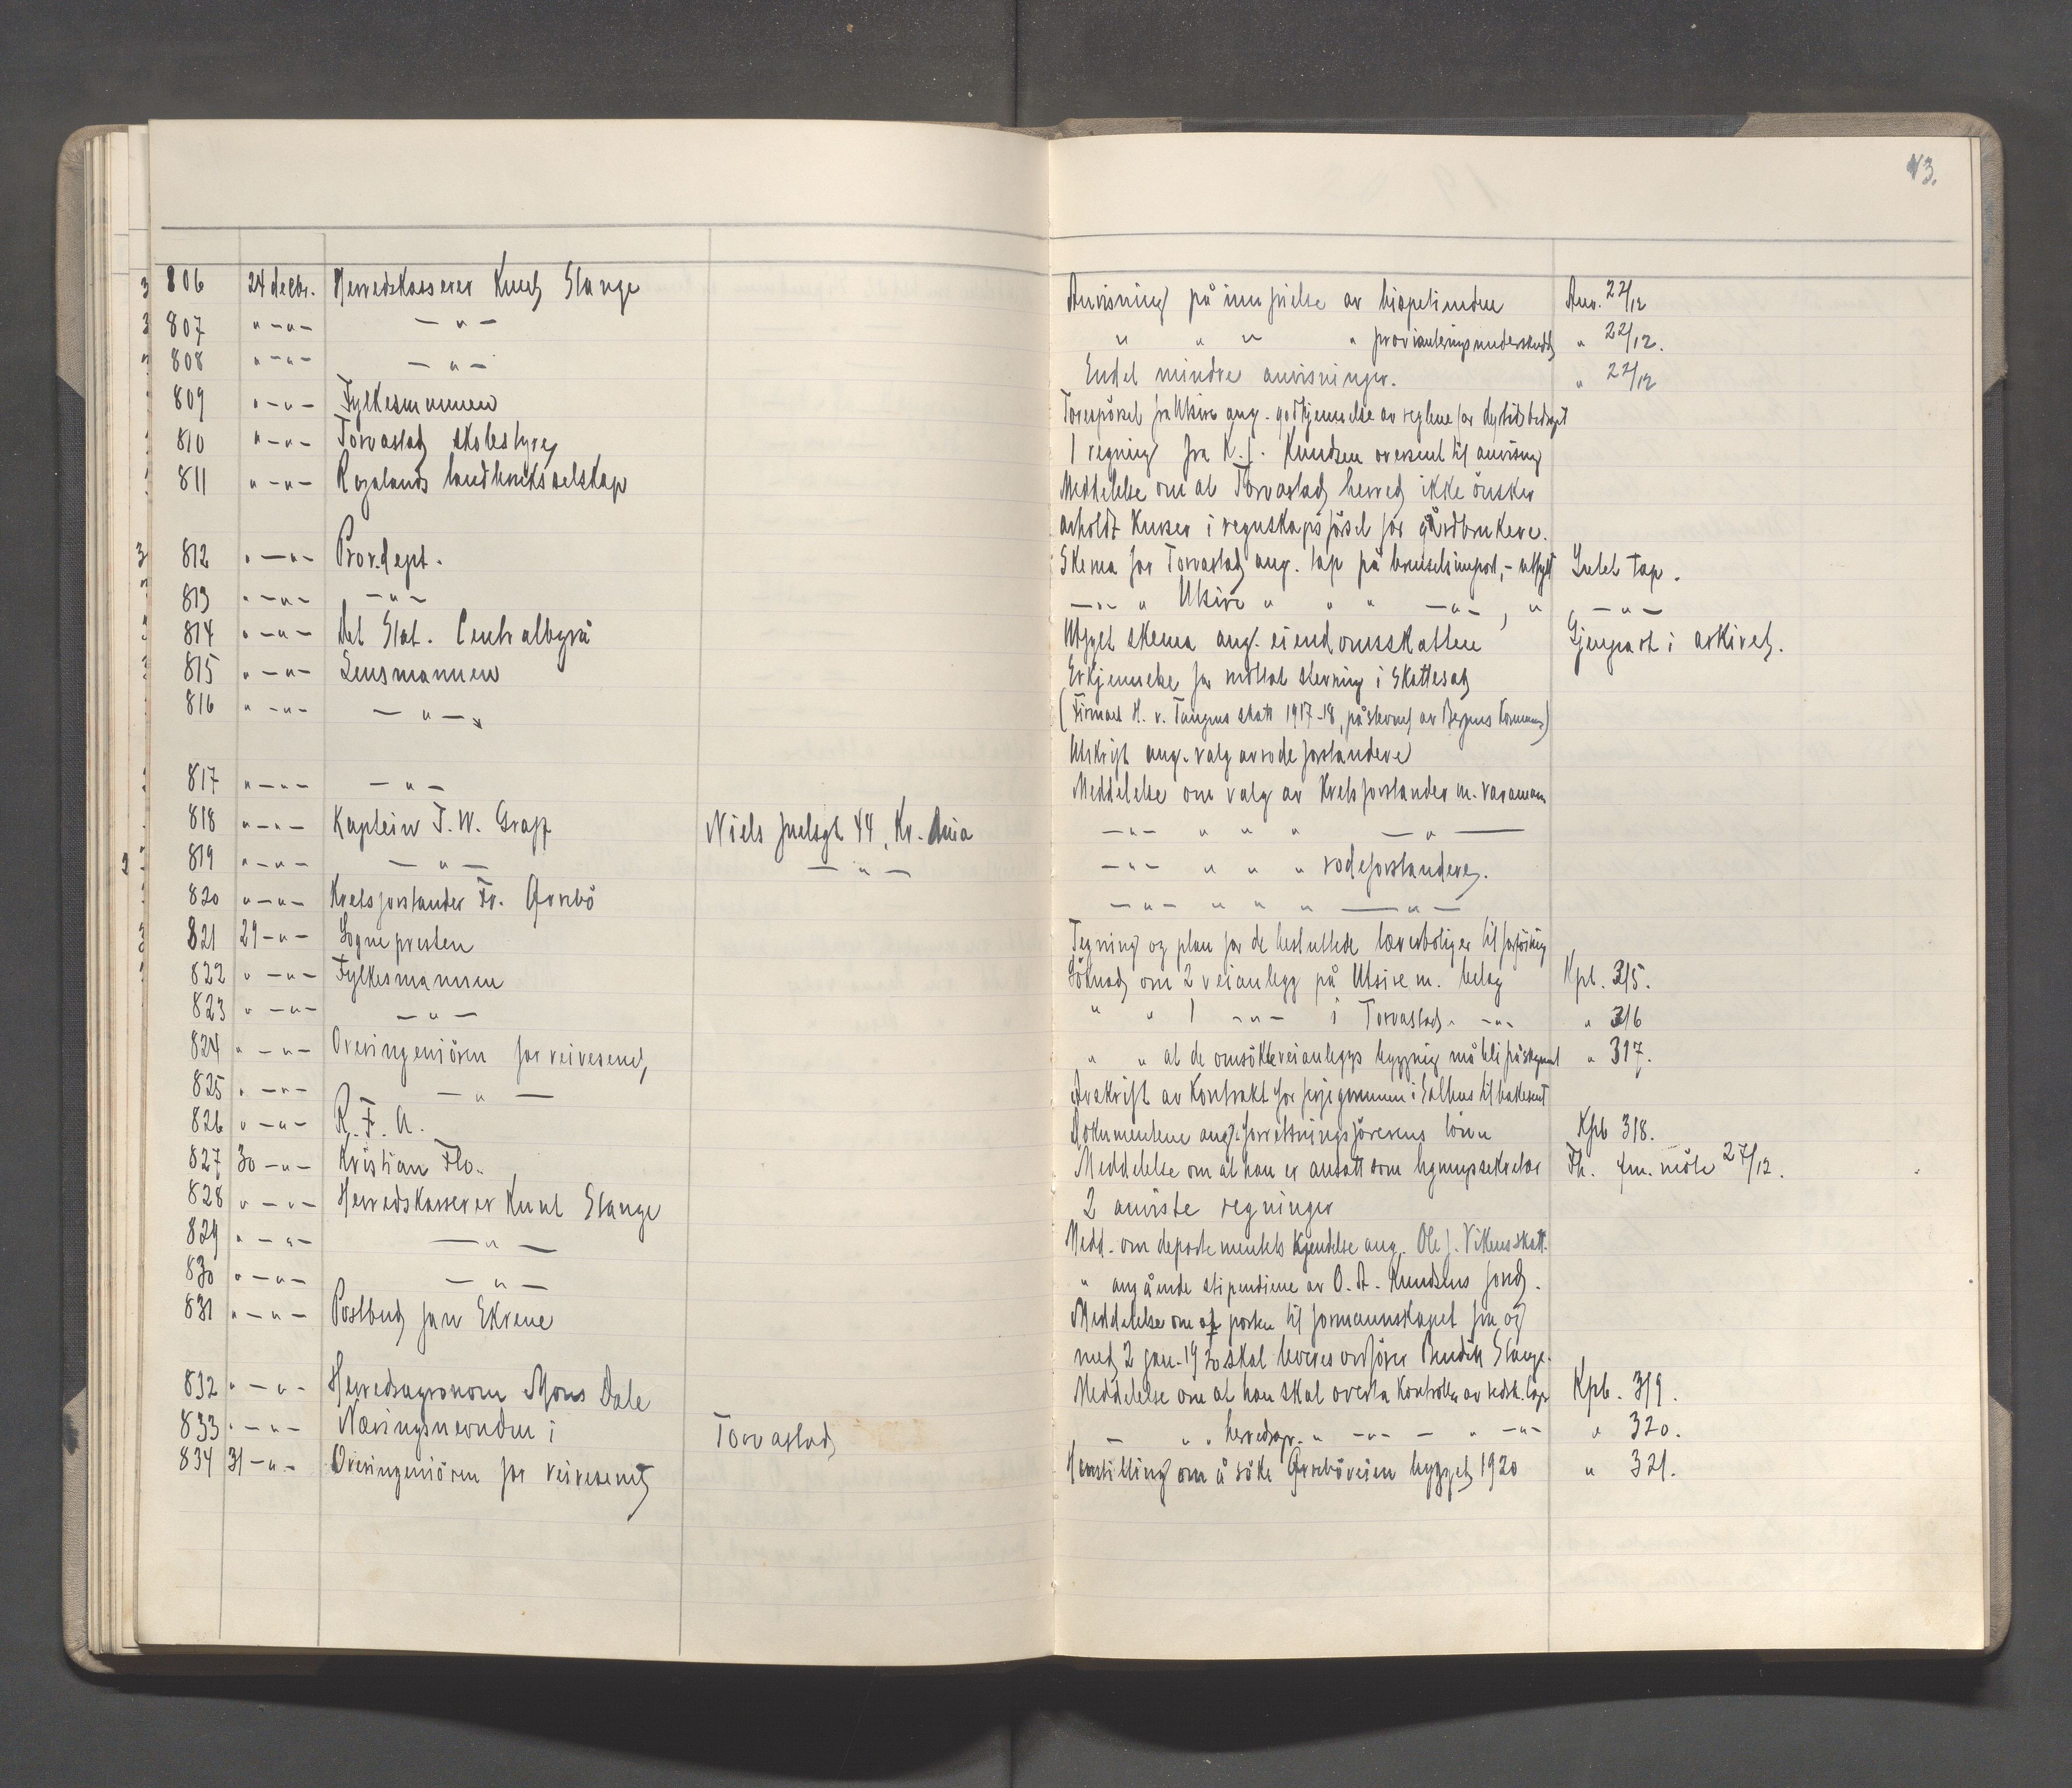 13.
806 24 decbr. Herredskasserer Knut Stange Anvisning på innfrielse av Anv. 22/12
807 " - " - - " - " " " " provianteringsunderskudd " 22/12.
808 " - " - - " - Endel mindre anvisninger. " 22/12
809 " - " - Fylkesmannen fra Utsire ang. godkjennelse av reglene for dyrtidsbidraget
810 " - " - Torvastad skolestyre 1 regning fra K. J. Knudsen oversent til anvisning
811 " - " - Rogalands landbruksselskap Meddelelse om at Torvastad herred ikke önsker
avholdt kurser i regnskapsförsel for gårdbrukere.
812 " - " - Prov.dept. Skema for Torvastad ang. tap på - utfylt Intet tap.
813 " - " - - " - - " - " Utsire " " " - " - , " , - " -
814 " - " - Det Stat. Centralbyrå Utfylt skema ang. eiendomsskatten Gjenpart i arkivet.
815 " - " - Lensmannen Erkjennelse for mottat stevning i skattesak
816 " - " - - " - (Firmaet H. v. Tangens skatt 1917-18, av Bergens kommune)
Utskrift ang. valg av rodeforstandere
817 " - " - - " - Meddelelse om valg av kretsforstander m. varamann
818 " - " - Kaptein T. W. Graff Niels Juelsgt 44, Kr.ania - " - " " " - " -
819 " - " - - " - - " - - " - " " " rodeforstandere.
820 " - " - Kretsforstander Fr. Qvrebö - " - " " " - " -
821 29 - " - Sognepresten Tegning og plan for de besluttede lærerboliger til
822 " - " - Fylkesmannen Söknad om 2 veianlegg på Utsire m. bilag Kpb. 315.
823 " - " - - " - " " 1 - " - i Torvastad. - " - " 316
824 " - " - Overingeniören for veivesenet, " " at de omsökte veianleggs bygning må bli påskyndt " 317.
825 " - " - - " - Avskrift av kontrakt for ferjegrunnen i Salhus tilbakesent
826 " - " - R. F. A. Dokumentene ang. forretningsförerens lönn Kpb 318.
827 30 - " - Kristian Flo. Meddelelse om at han er ansatt som Fh. fm. möte 27/12.
828 " - " - Herredskasserer Knut Stange 2 anviste regninger
829 " - " - - " - Medd. om departementets kjendelse ang. Ole J. Vikens skatt.
830 " - " - - " - " angående stipendiene av O. A. Knudsens fond.
831 " - " - Postbud Jan Ekrene Meddelelse om at posten til formannskapet fra og
med 2 jan. 1920 skal leveres ordförer Bendik Stange.
832 " - " - Herredsagronom Mons Dale Meddelelse om at han skal overta kontrollen av Kpb. 319.
833 " - " - Næringsnevnden i Torvastad - " " herredsagr. " - " - - " - " - " 320.
834 31 - " - Overingeniören for veivesenet Henstilling om å söke Qvreböveien bygget 1920 " 321.